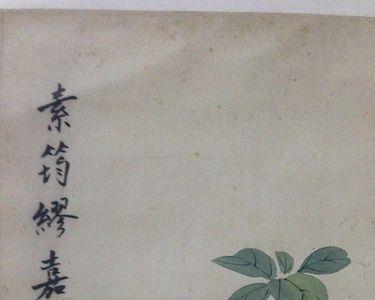 素筠繆嘉